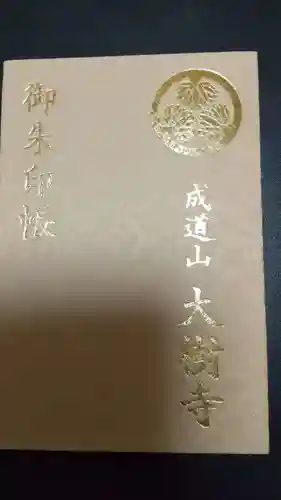 御朱印帳
成道山 大樹寺